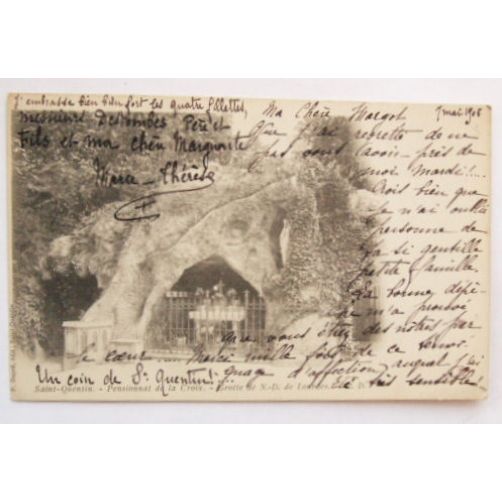 J'embrasse bien bien fort les quatre fillettes,
messieurs Destombes Père et
Fils et ma chère Marguerite
Marie-Thérèse
Ma Chère Margot 1 mai 1905
Que j'ai regretté de ne
pas vous avoir près de
moi Mardi!...
Crois bien que
je n'ai oublié
personne de
ta si gentille
petite famille
Ta bonne dépê-
che m'a prouvé
que vous étiez des nôtres par
le cœur Merci mille fois de ce
gage d'affection auquel j'ai
été très sensible!
Un coin de St Quentin!...
Saint-Quentin. - Pensionnat de la Croix. - Grotte de N.-D. de Lourdes.